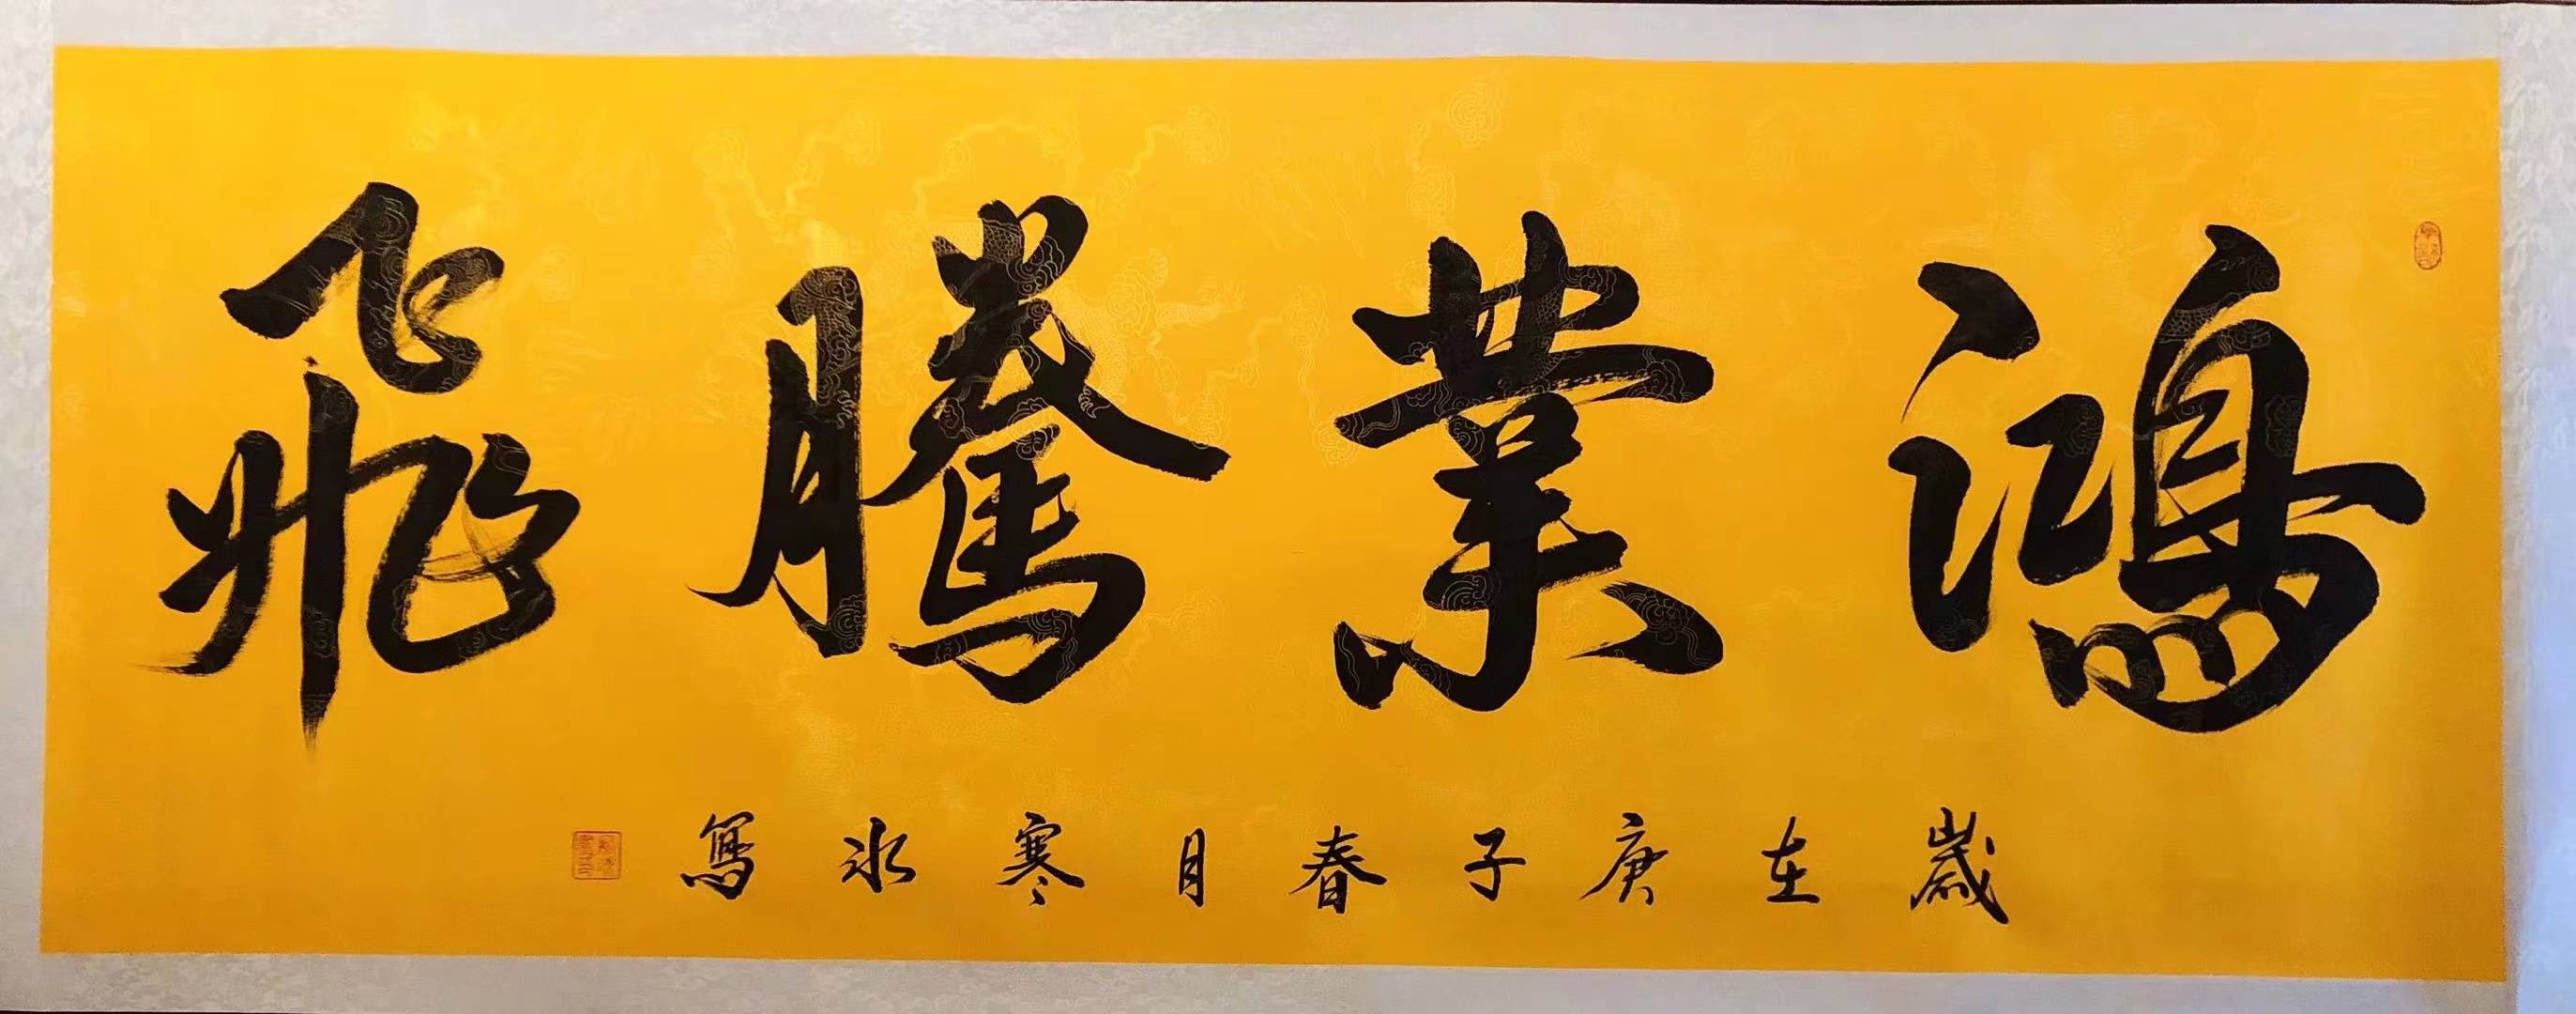 鴻業騰飛
歲在庚子春月寒冰寫